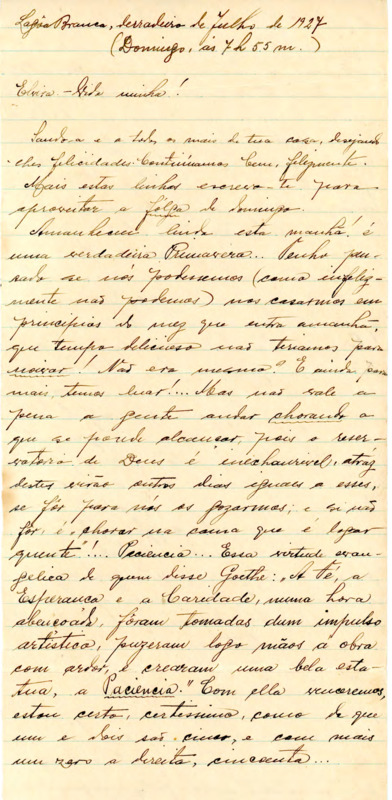 Lagôa Branca, derradeiro de Julho de 1927
(Domingo, ás 7 h 55 m.)
Elvira. - Vida minha!
Saudo-a e a todos os mais de tua casa, desejando-
lhes felicidades. Continúamos bem, felizmente.
Mais estas linhas escrevo-te para
aproveitar a fólga de domingo.
Amanheceu linda esta manhã! é
uma verdadeira Primavera... Tenho pen-
sado se nós podessemos (como infeliz-
mente não podemos) nos casarmos em
principios do mez que entra amanhã,
que tempo delicioso não teriamos para
noivar! Não era mesmo? E ainda por
mais, temos luar!... Mas não vale a
pena a gente andar chorando o
que se poude alcançar, pois o reser-
vatorio de Deus é inexhaurivel, atraz
destes virão outros dias iguaes a esses,
se fôr para nós os gozarmos; e si não
fôr, é, chorar na cama que é logar
quente!... Paciencia... Essa virtude evan-
gelica de quem disse Goethe: "A Fé, a
Esperança e a Caridade, numa hora
abençoáda, fôram tomadas dum impulso
artistico, puzeram logo mãos á obra
com ardor, e crearam uma bela esta-
tua, a Paciencia." Com ella venceremos,
estou certo, certissimo, como de que
um e dois são cinco, e com mais
um zero a direita, cincoenta...